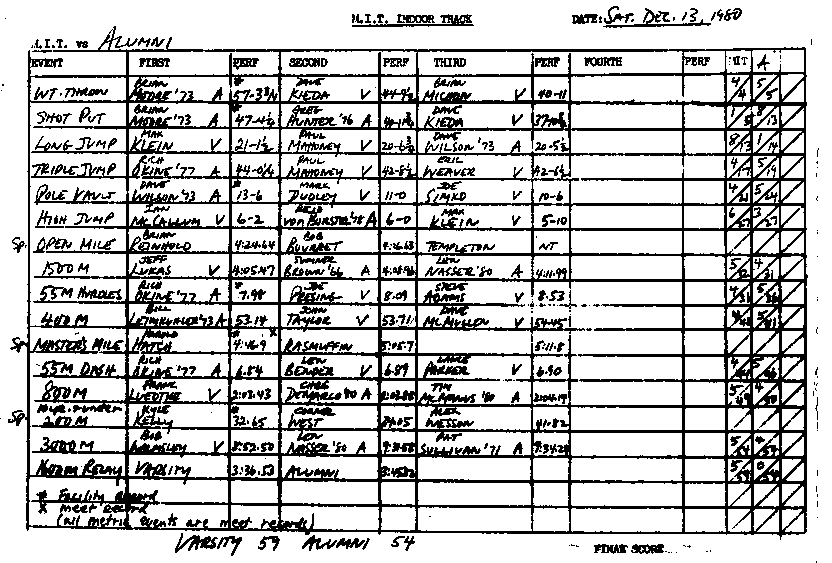 M.I.T. INDOOR TRACK DATE: SAT. DEC. 13, 1980
M.I.T. vs ALUMNI
EVENT FIRST PERF SECOND PERF THIRD PERF FOURTH PERF MIT A
WT. THROW BRIAN MOORE '73 A * 57-3¾ DAVE KIEDA V BRIAN V 40-11 4/4 5/5
SHOT PUT BRIAN MOORE '73 A 47-4½ GREG HUNTER '76 A DAVE KIEDA V
LONG JUMP MAX KLEIN V 21-1½ PAUL MAHONEY V 20-6½ DAVE WILSON '73 A 20-5½ 8/13 1/14
TRIPLE JUMP RICH OKINE '77 A 44-0¼ PAUL MAHONEY V 42-8½ ERIC WEAVER V 42-6½ 4/17 5/19
POLE VAULT DAVE WILSON '73 A * 13-6 MARK DUDLEY V 11-0 JOE SIMKO V 10-6 4/21 5/24
HIGH JUMP IAN McCALLUM V 6-2 REID von BORSTEL '78 A 6-0 MAX KLEIN V 5-10 6/27 3/27
Sp. OPEN MILE BRIAN REINHOLD 4:24.64 BOB 4:26.68 TEMPLETON NT
1500 M JEFF LUKAS V 4:05.47 SUMNER BROWN '66 A LEN NASSER '80 A 4:11.99 5/32 4/31
55 M HURDLES RICH OKINE '77 A * 7.98 JOE PRESING V 8.09 STEVE ADAMS V 8.53 4/36 5/36
400 M BILL A 53.14 JOHN TAYLOR V 53.71 DAVE McMULLEN V 54.45
Sp. MASTER'S MILE HAROLD HATCH * x 4:46.9 RASMUFFIN 5:05.7 5:11.8
55 M DASH RICH OKINE '77 A 6.84 LEN BENDER V 6.89 LANCE PARKER V 6.90
800 M FRANK V 2:03.43 '80 A TIM McMANUS '80 A 2:04.19 5/49 4/50
Sp. 10 yr. + under 200 M KYLE KELLY * 32.65 CONNOR WEST ALEX WESSON 41.82
3000 M BOB WALMSLEY V 8:52.50 LEN NASSER '80 A PAT SULLIVAN '71 A 5/54 4/54
1600 M RELAY VARSITY 3:36.53 ALUMNI 5/59 0/54
* Facility Record
x meet record
(all metric events are meet records)
VARSITY 59 ALUMNI 54 FINAL SCORE